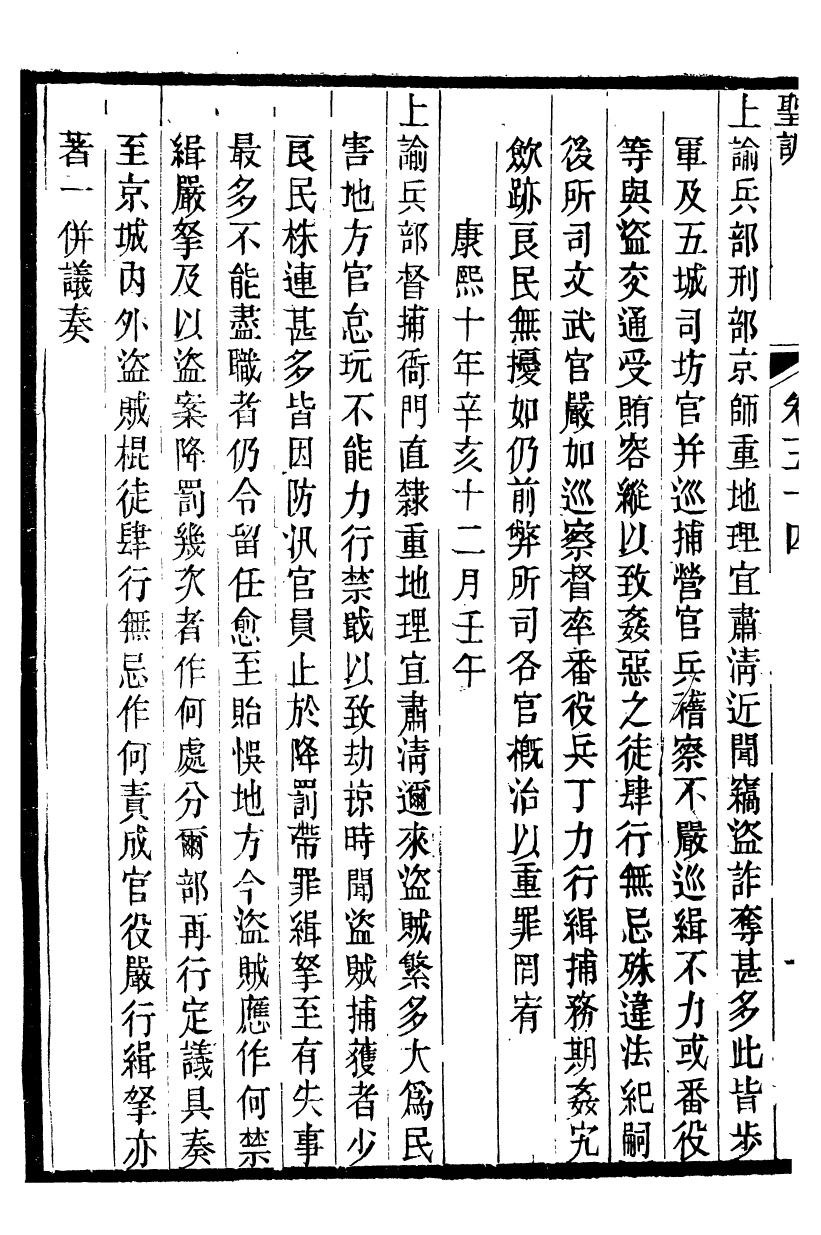 聖訓 卷五十四 一
上諭兵部刑部京師重地理宜肅淸近聞竊盜詐奪甚多此皆步
軍及五城司坊官并巡捕營官兵稽察不嚴巡緝不力或番役
等與盜交通受賄容縱以致姦惡之徒肆行無忌殊違法紀嗣
後所司文武官嚴加巡察督率番役兵丁力行緝捕務期姦宄
斂跡良民無擾如仍前弊所司各官槪治以重罪罔宥
康熙十年辛亥十二月壬午
上諭兵部督捕衙門直隸重地理宜肅淸邇來盜賊繁多大爲民
害地方官怠玩不能力行禁戢以致劫掠時聞盜賊捕獲者少
良民株連甚多皆因防汛官員止於降罰帶罪緝拏至有失事
最多不能盡職者仍令留任愈至貽悞地方今盜賊應作何禁
緝嚴拏及以盜案降罰幾次者作何處分爾部再行定議具奏
至京城內外盜賊棍徒肆行無忌作何責成官役嚴行緝拏亦
著一併議奏